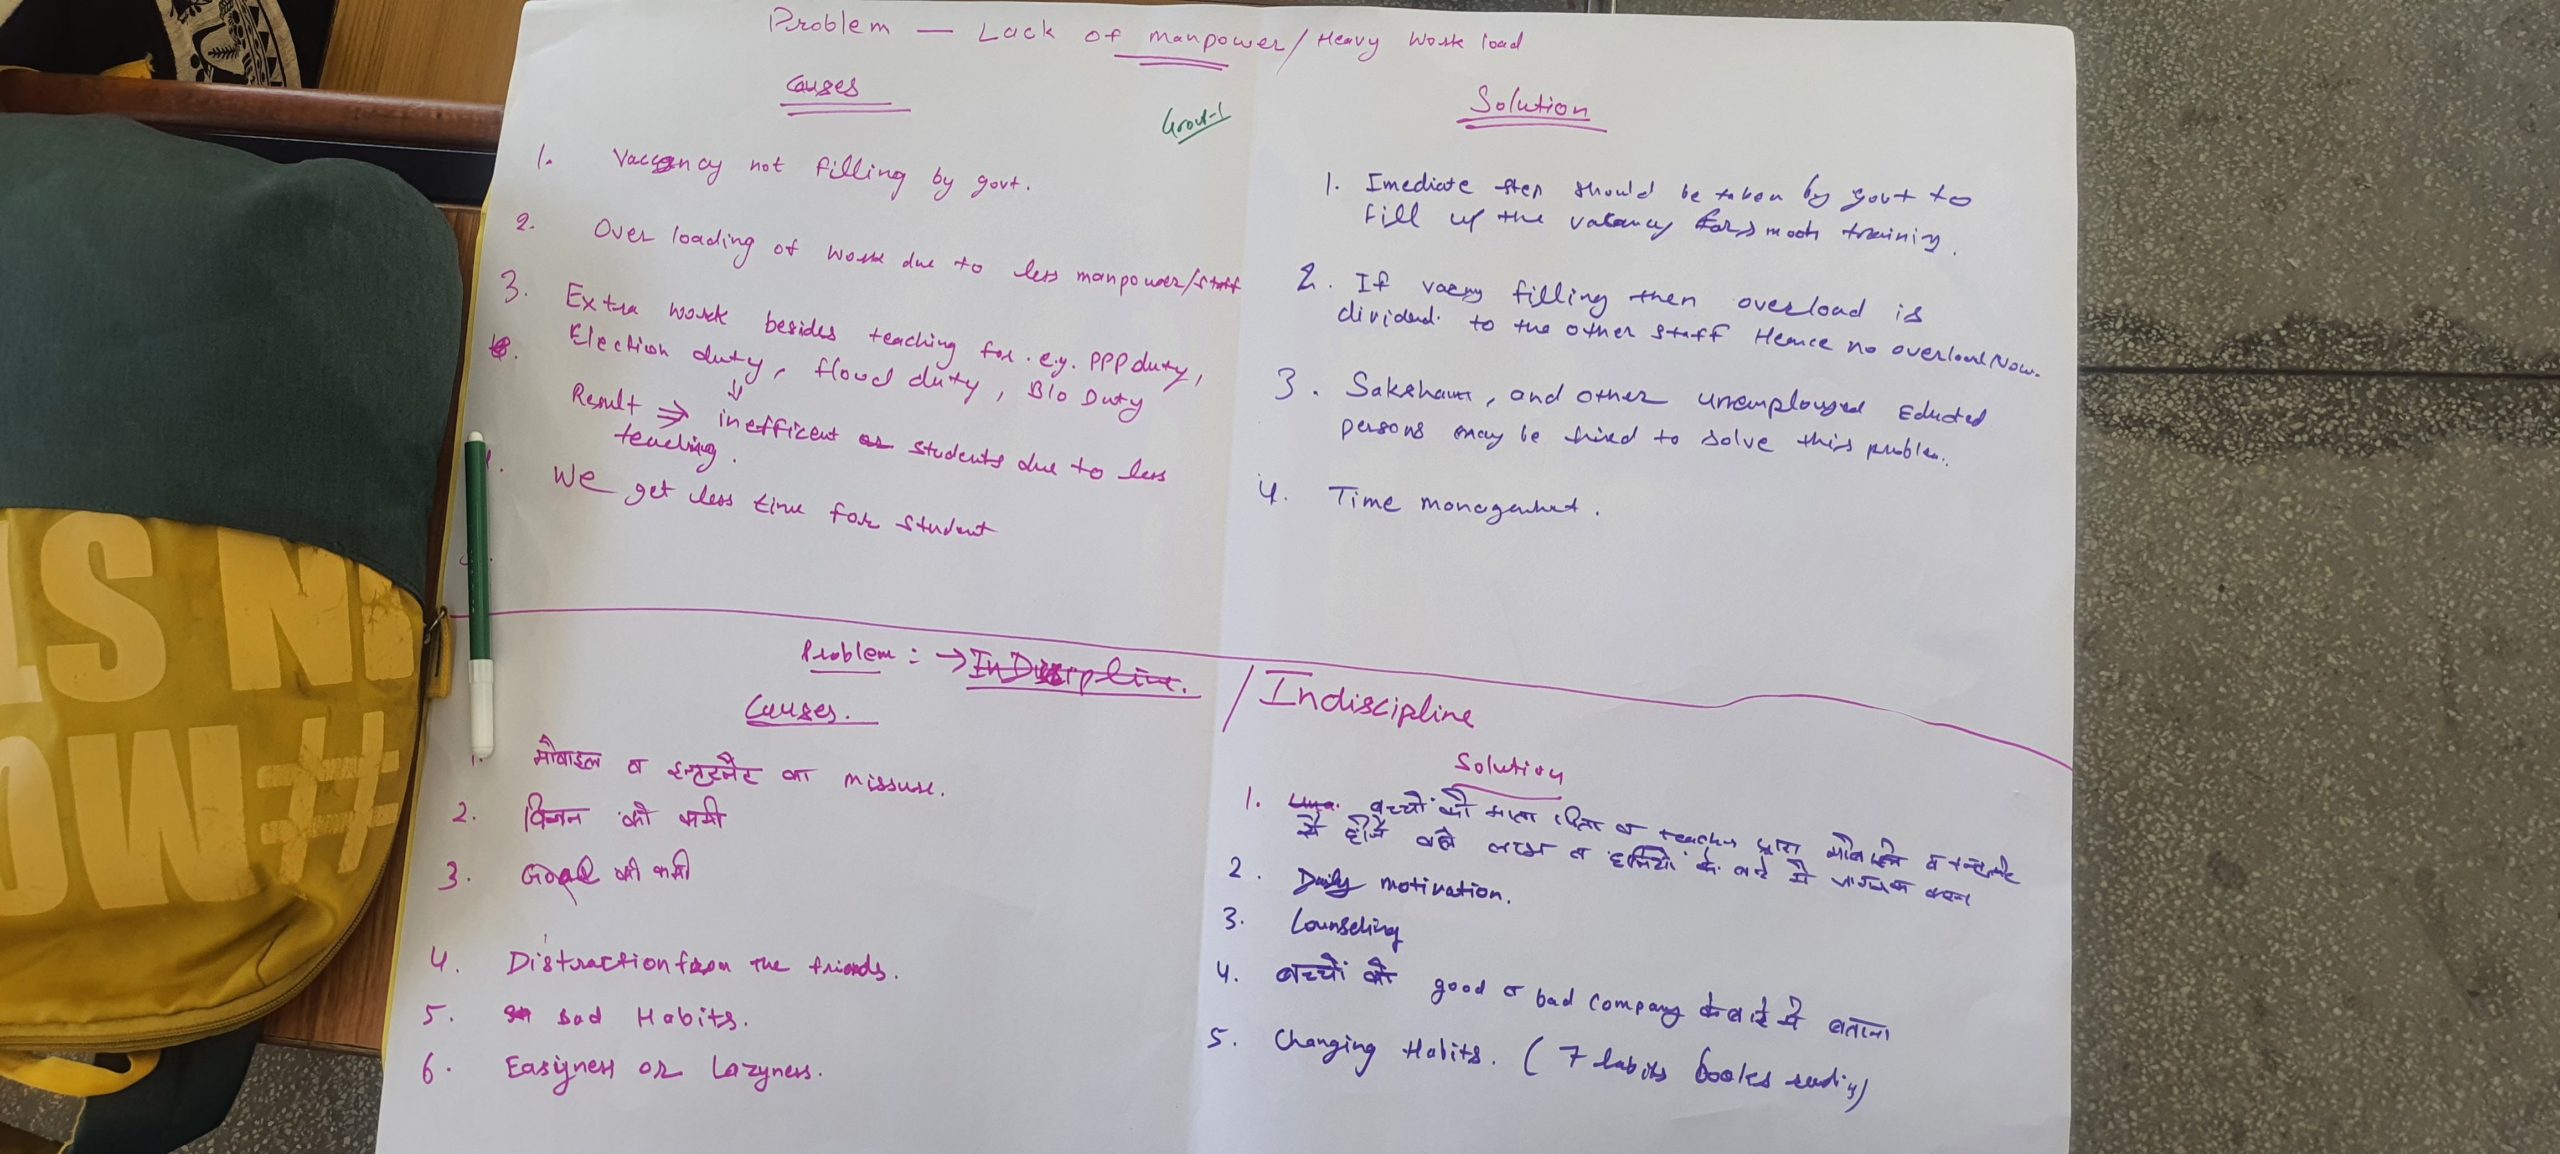 Problem — Lack of manpower/Heavy Work load
Causes
Grout-1
1. Vaccancy not filling by govt.
2. Over loading of work due to less manpower/staff
3. Extra work besides teaching for e.g. PPP duty,
Election duty, flood duty, Blo Duty
Result ⇒ inefficent students due to less
teaching.
We get less time for student
Solution
1. Imediate step should be taken by govt to
fill up the vacancy for smooth training.
2. If filling then overload is
divided to the other staff Hence no overload Now.
3. Saksham, and other unemployed Educted
persons may be hired to solve this problem.
4. Time management.
Problem : → InDiscipline. / Indiscipline
Causes.
1. मोबाइल व इन्टरनेट का missuse.
2. विजन की कमी
3. Goal की कमी
4. Distraction from the friends.
5. bad Habits.
6. Easiyness or Lazyness.
Solution
1. बच्चों को माता पिता व teacher द्वारा मोबाईल व इन्टरनेट
से होने वाले लाभ व हानियों के बारे में जागरूक करना
2. Daily motivation.
3. Counseling
4. बच्चों को good व bad company के बारे में बताना
5. Changing Habits. (7 habits books reading)
IN
LS N
#MOW